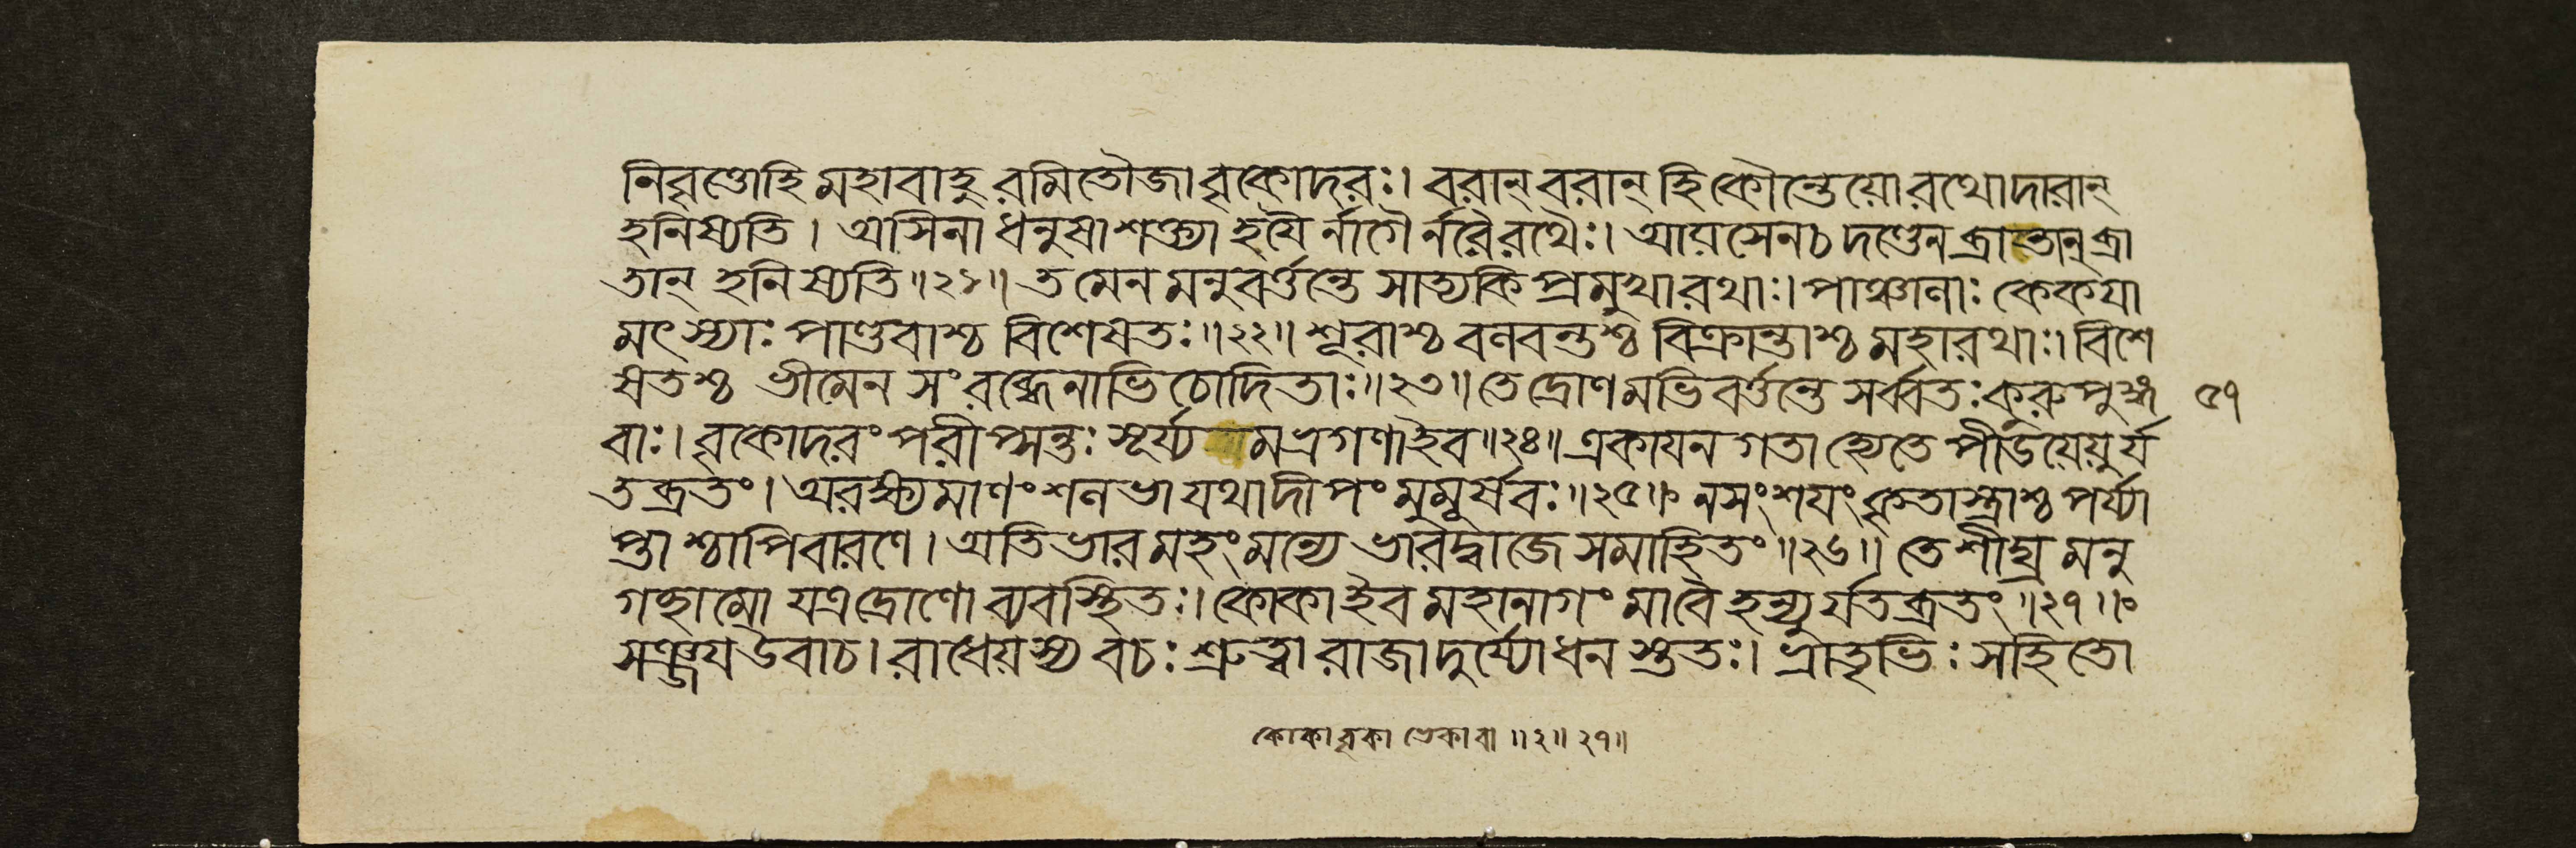 নিবৃত্তোহি মহাবাহু রমিতৌজা বৃকোদরঃ। বরান্ বরান্ হি কৌন্তেয়ো রথোদারান্
হনিষ্যতি। অসিনা ধনুষা শক্ত্যা হয়ৈ র্নাগৈ র্নরৈ রথৈঃ। আয়সেন চ দণ্ডেন ব্রাতান্ ব্রা
তান্ হনিষ্যতি॥২১॥ তমেন মনুবর্ত্তন্তে সাত্যকি প্রমুখা রথাঃ। পাঞ্চালাঃ কেকয়া
মৎস্যাঃ পাণ্ডবাশ্চ বিশেষতঃ॥২২॥ শূরাশ্চ বলবন্তশ্চ বিক্রান্তাশ্চ মহারথাঃ। বিশে
ষতশ্চ ভীমেন সংরব্ধেনাভিচোদিতাঃ॥২৩॥ তে দ্রোণমভিবর্ত্তন্তে সর্ব্বতঃ কুরুপুঙ্গ ৫৭
বাঃ। বৃকোদরং পরীপ্সন্তঃ সূর্য্য মভ্রগণা ইব॥২৪॥ একায়ন গতা হ্যেতে পীডয়েয়ুর্য
তব্রতং। অরক্ষ্যমাণং শলভা যথা দীপং মুমূর্ষবঃ॥২৫॥ ন সংশয়ং কৃতাস্ত্রাশ্চ পর্য্যা
প্তা শ্চাপি বারণে। অতিভারমহং মন্যে ভারদ্বাজে সমাহিতং॥২৬॥ তে শীঘ্র মনু
গচ্ছামো যত্র দ্রোণো ব্যবস্থিতঃ। কোকা ইব মহানাগং মা বৈ হন্যুর্যতব্রতং॥২৭॥
সঞ্জয় উবাচ। রাধেয়স্য বচঃ শ্রুত্বা রাজা দুর্য্যোধন স্ততঃ। ভ্রাতৃভিঃ সহিতো
কোকা বৃকা ভেকা বা॥২॥২৭॥